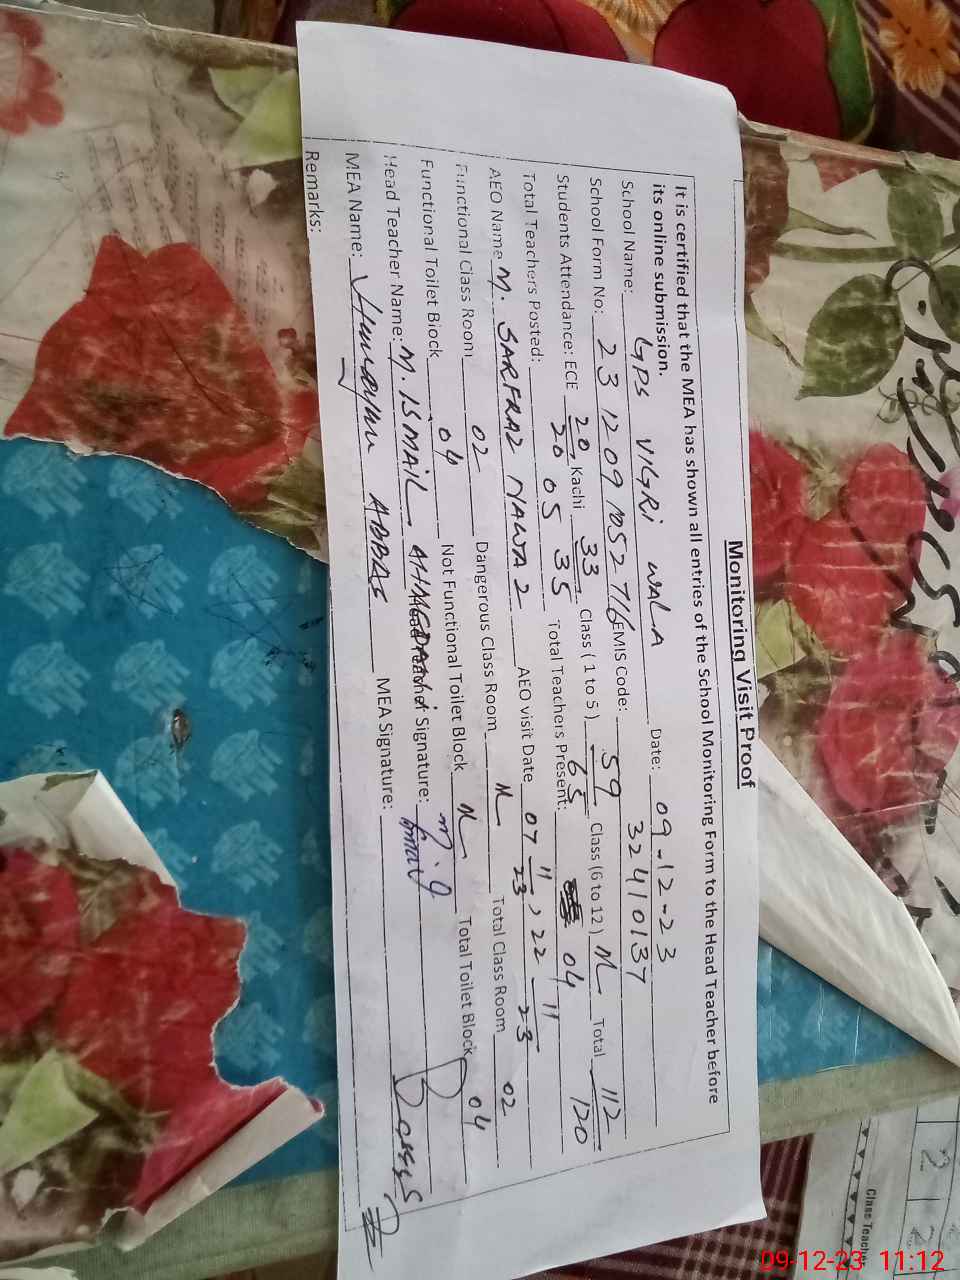 Monitoring Visit Proof
It is certified that the MEA has shown all entries of the School Monitoring Form to the Head Teacher before
its online submission.
School Name: GPS VIGRI WALA Date: 09-12-23
School Form No: 23 12 09 105276 EMIS Code: 32410137
Students Attendance: ECE 20/20 Kachi 33/35 Class (1 to 5) 59/65 Class (6 to 12) N Total 112/120
Total Teachers Posted: 05 Total Teachers Present: 04
AEO Name M. SARFRAZ NAWAZ AEO visit Date 07 11/23, 22 11/23
Functional Class Room 02 Dangerous Class Room N Total Class Room 02
Functional Toilet Block 04 Not Functional Toilet Block N Total Toilet Block 04
Head Teacher Name: M. ISMAIL AHMED Head Teacher Signature:
MEA Name: Humayun ABBAS MEA Signature:
Remarks:
Class Teacher
2 2
09-12-23 11:12